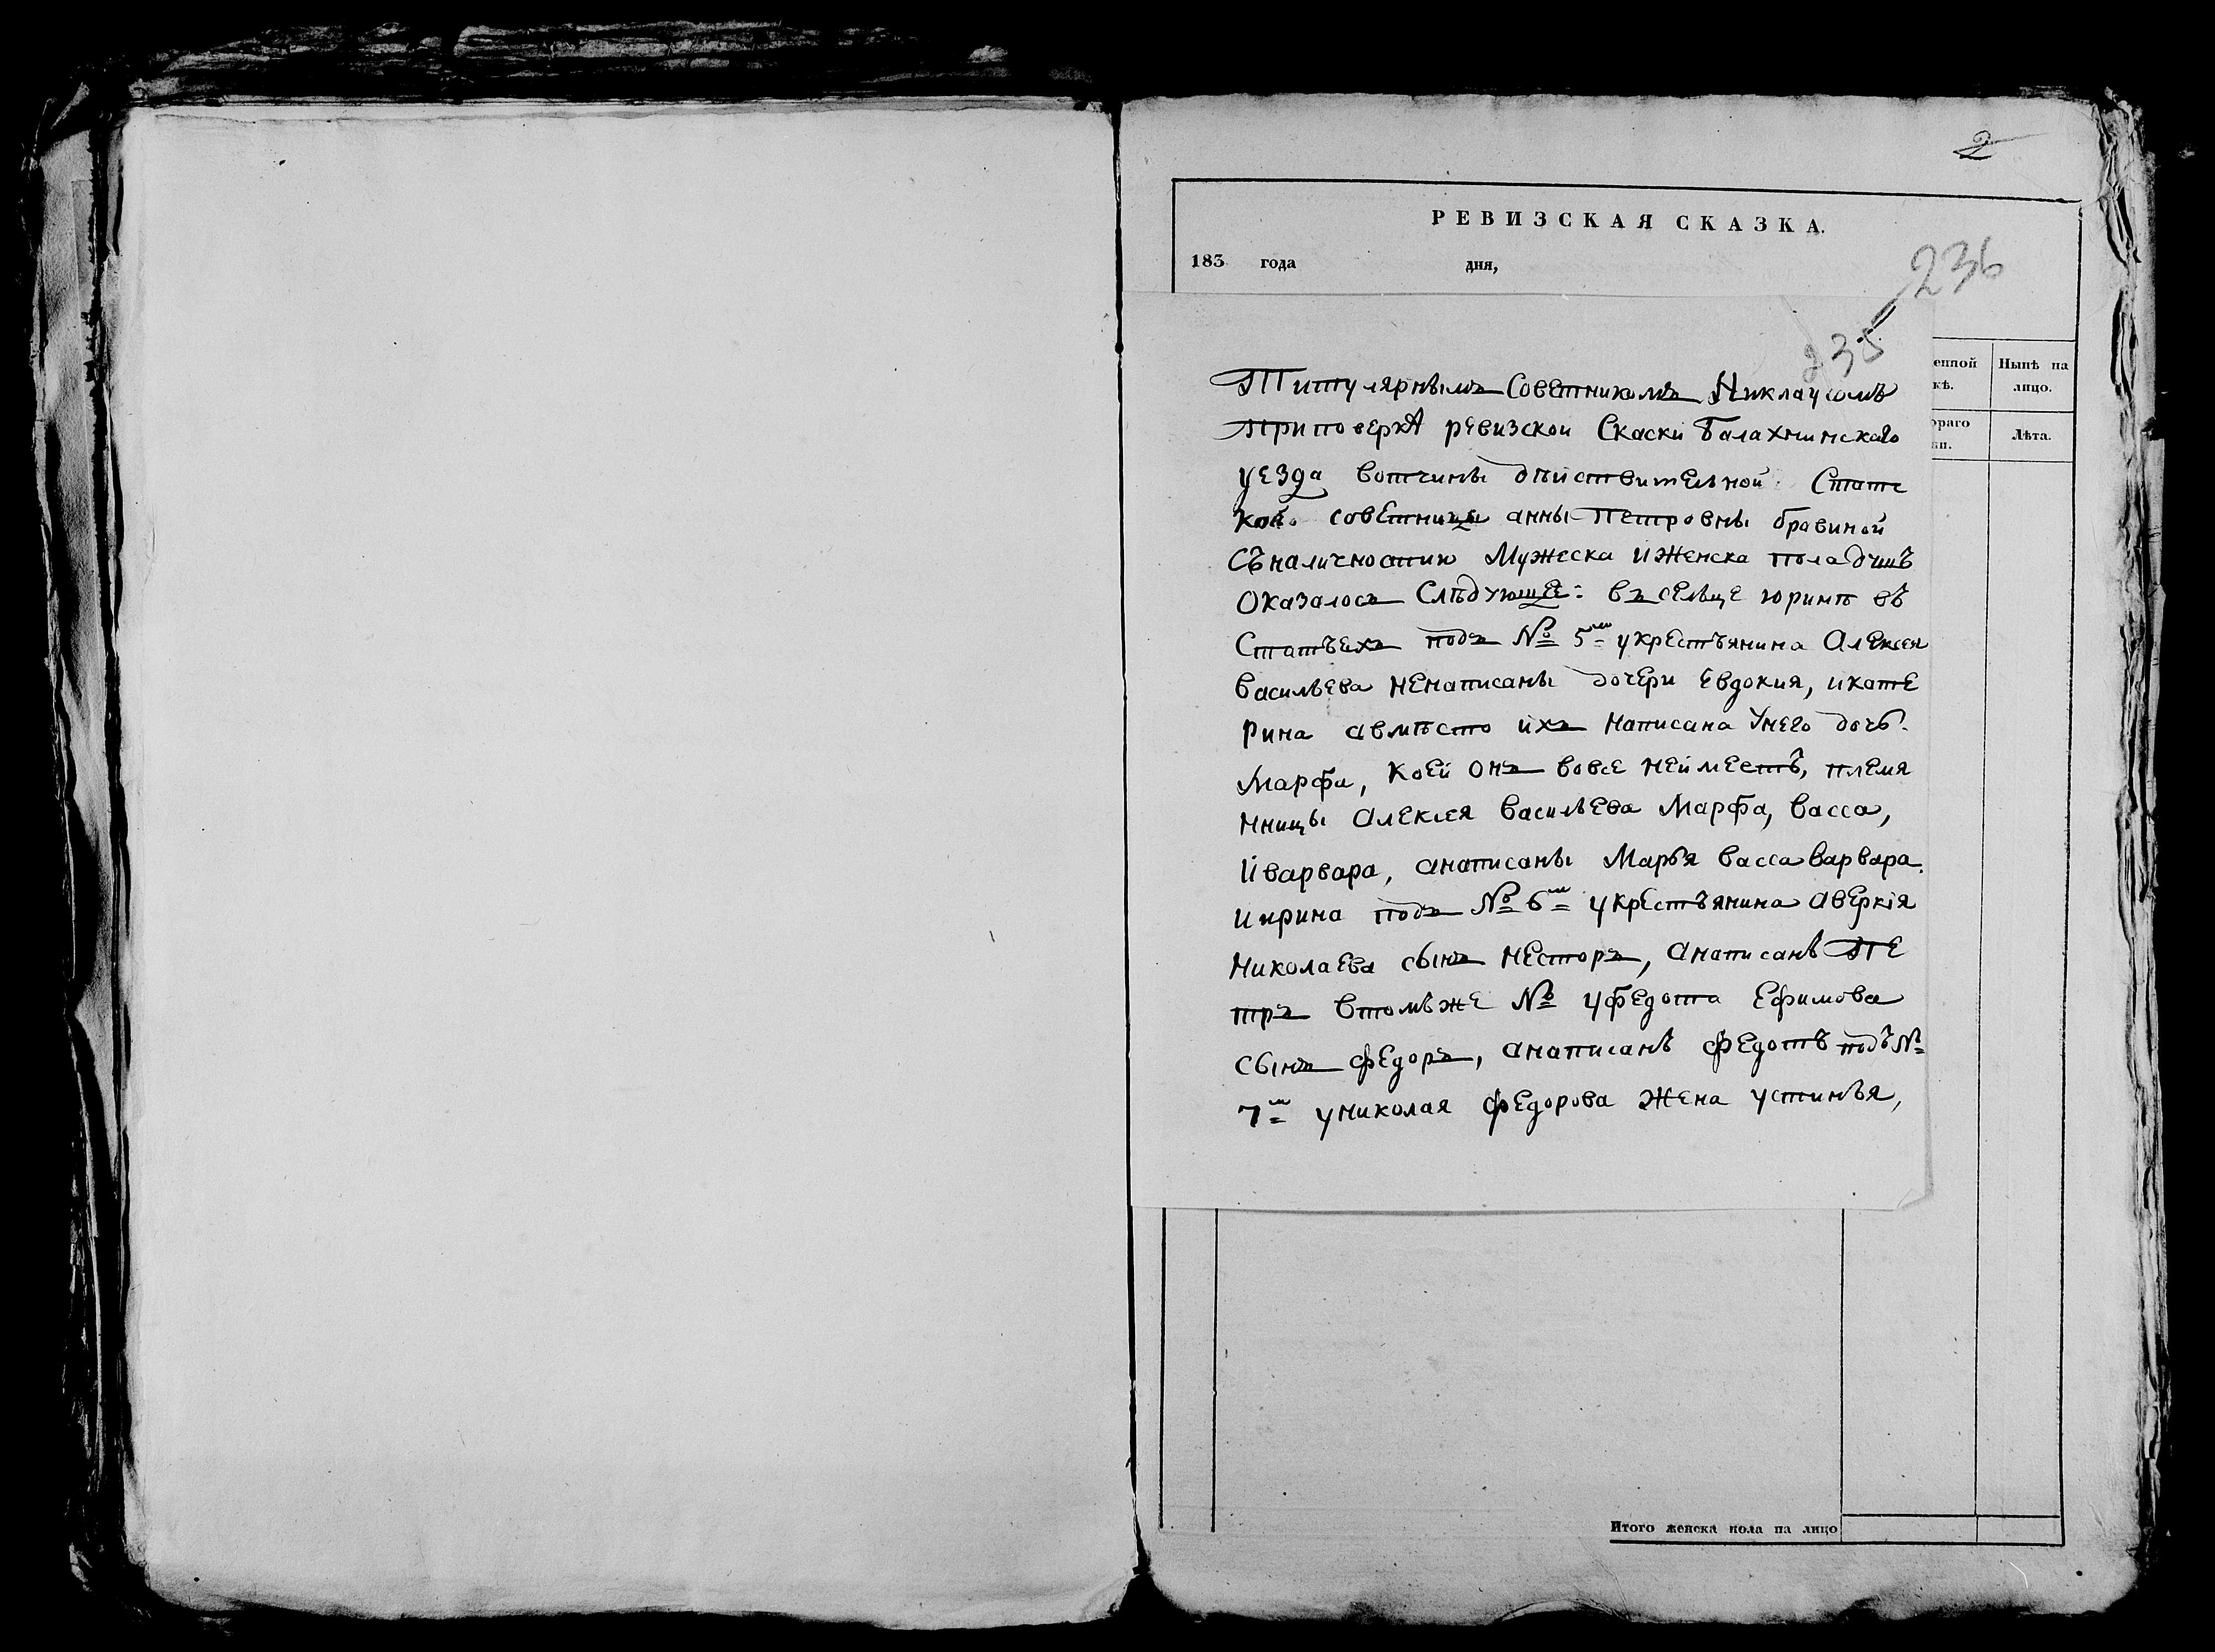 2
РЕВИЗСКАЯ СКАЗКА.
183 года дня,
236
235
енной
кѣ.
Нынѣ на
лицо.
ораго
Лѣта.
Титулярнымъ Советникомъ Никлаусомъ
приповерке ревизской Скаски Балахнинскаго
уезда вотчины дѣйствительной Статс
кой советницы анны Петровны бравиной
Съналичностию Мужеска иженска пола душъ
Оказалось Слѣдующее: въ сельце юринѣ въ
Статьехъ подъ № 5м укрестьянина Алексея
Васильева ненаписаны дочери Евдокия, икате
рина авмѣсто ихъ написана Унего дочь
Марфа, коей онъ вовсе неимеетъ, племя
нницы Алексея Васильева Марфа, Васса,
Иварвара, анаписаны Марья Васса Варвара.
Иирина подъ № 6м укрестьянина Аверкія
Николаева сынъ Несторъ, анаписанъ Пе
тръ Втомъже № уфедота Ефимова
сынъ федоръ, анаписанъ федотъ подъ №
7м униколая федорова жена устинья,
Итого женска пола на лицо